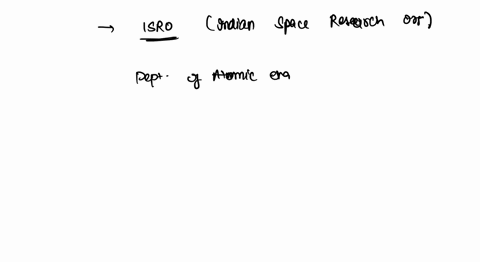 → ISRO (Indian Space Research or)
Dept. of Atomic era